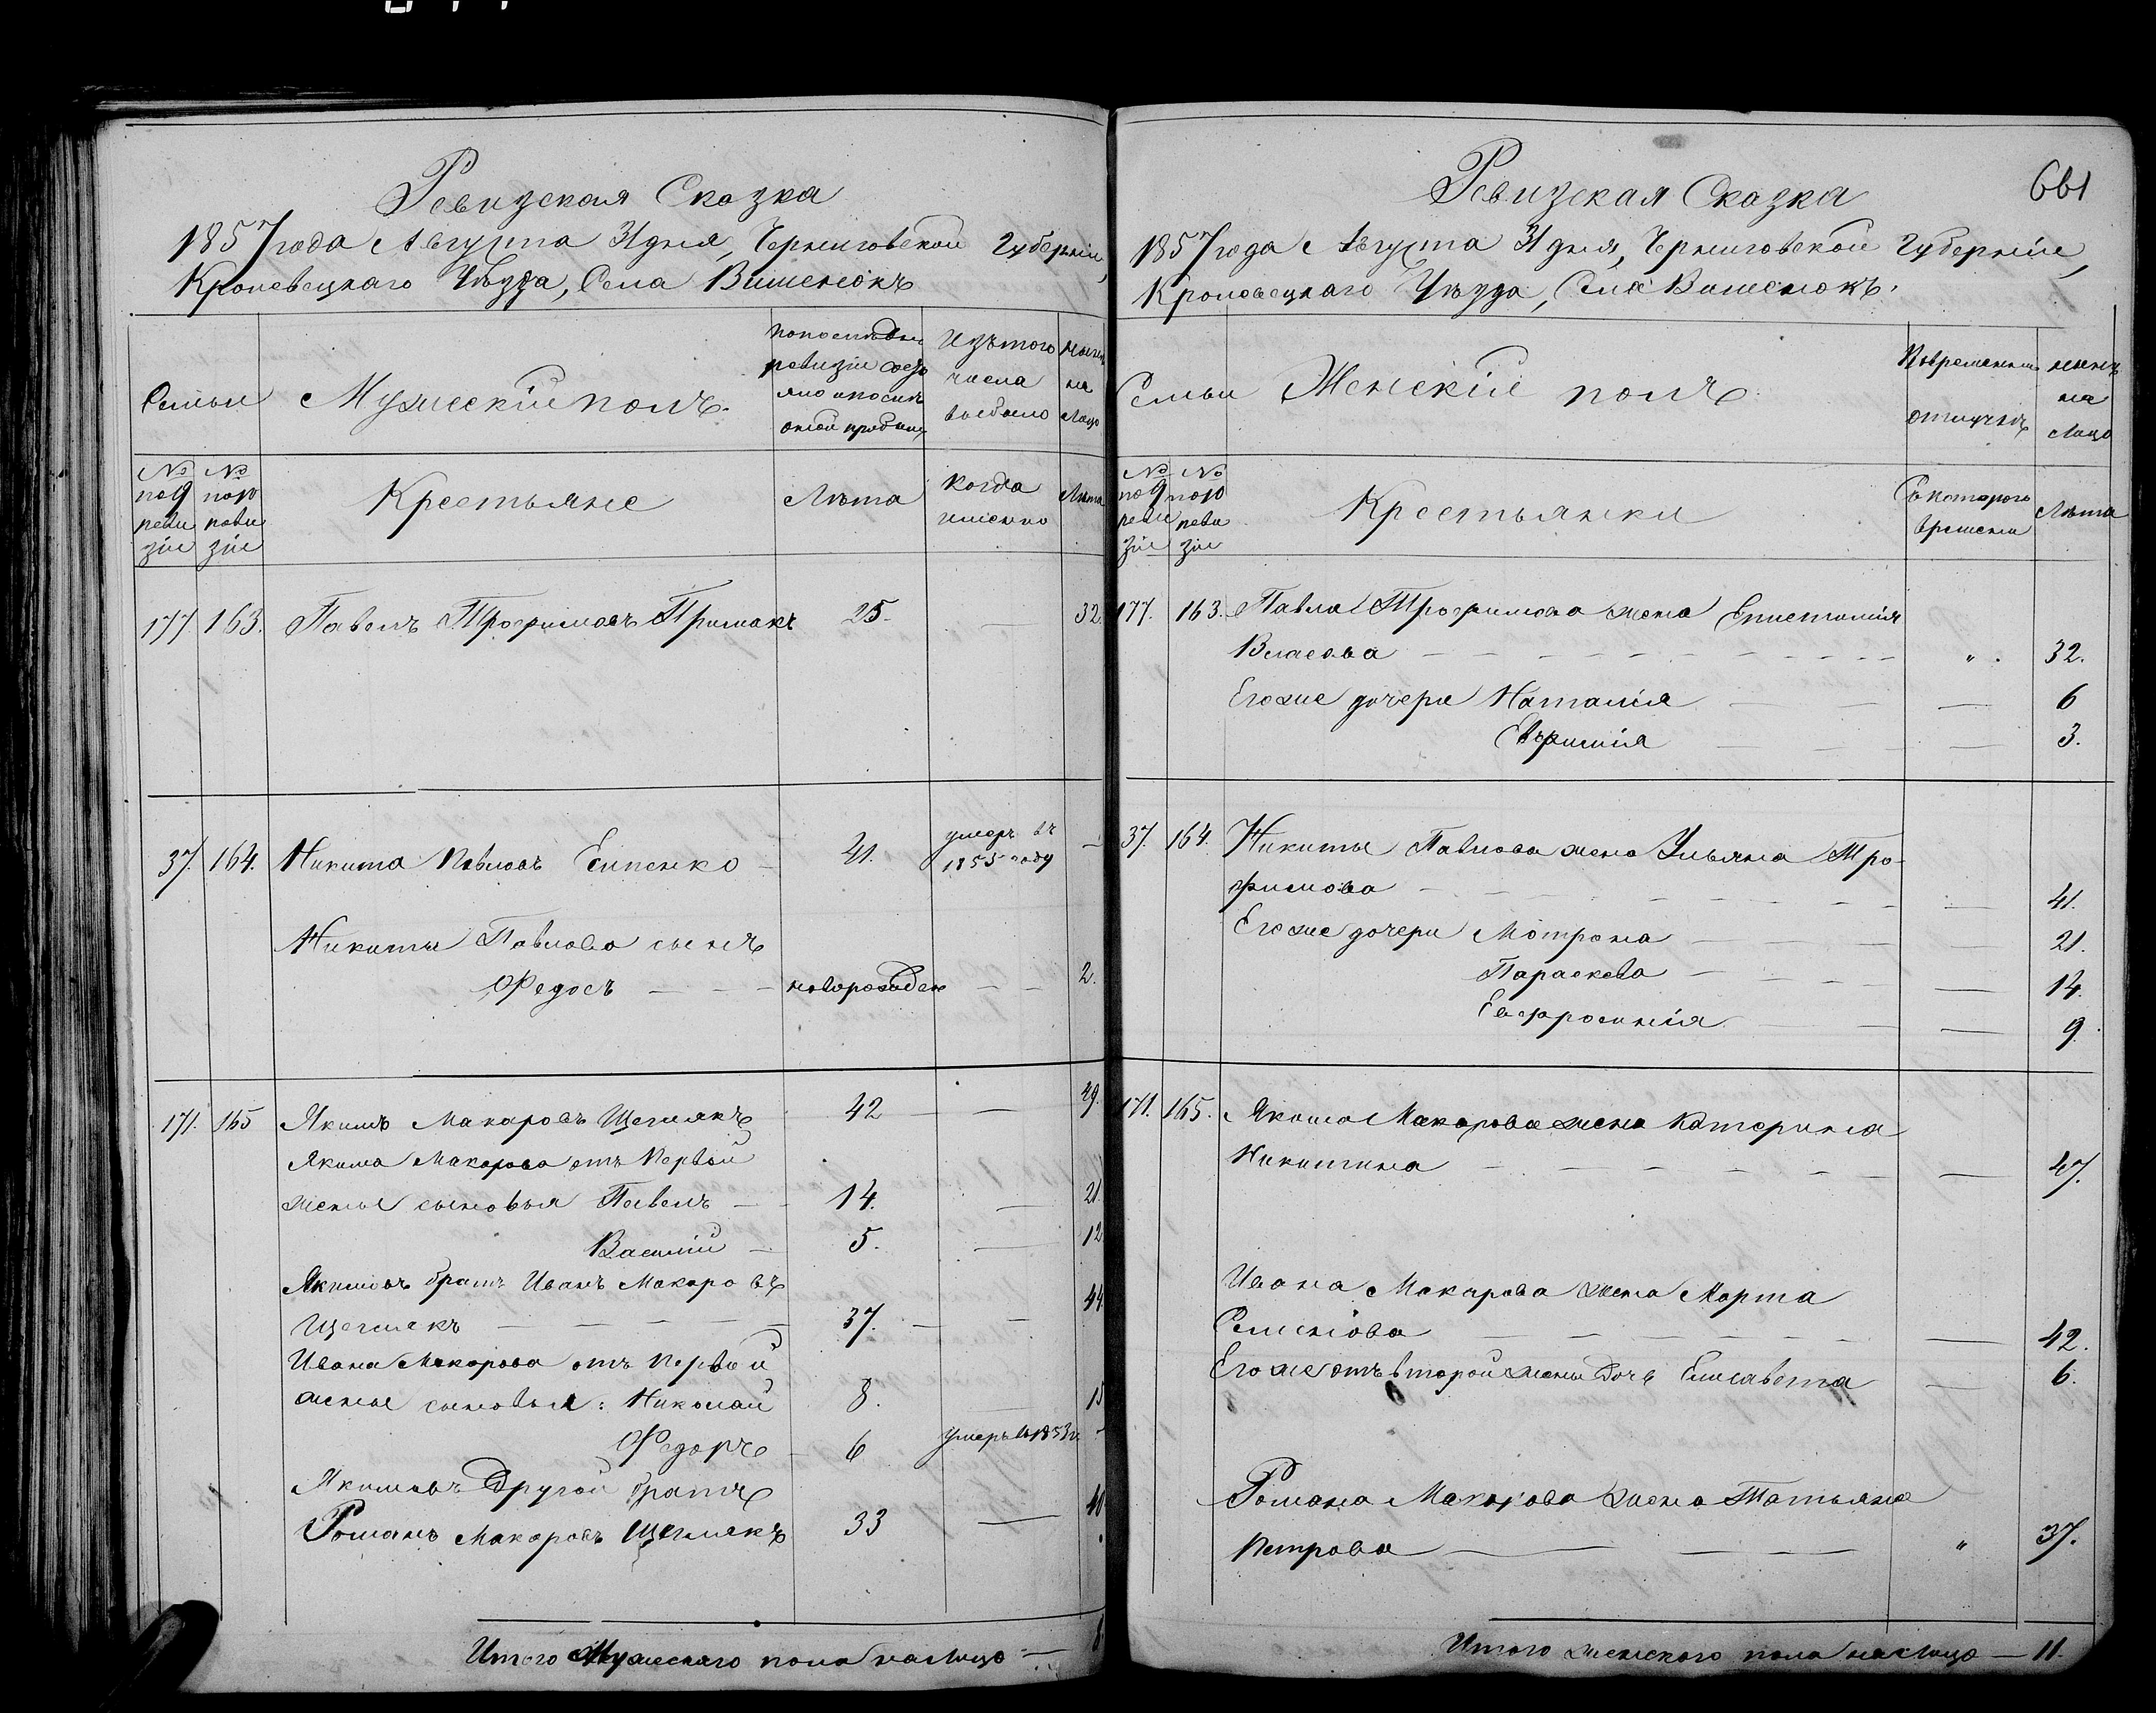 Ревизская Сказка
1857 года Августа 31 дня, Черниговской Губернiи,
Кролевецкаго Уѣзда, Села Вишенокъ
Семьи
Мужескiй полъ.
по последней
ревизiи состо
яло и после
оной прибыло
Изъ того
числа
выбыло
ныне
на
лицо
№
по 9
реви
зiи
№
по 10
реви
зiи
Крестьяне
Лѣта
когда
именно
Лѣта
177. 163. Павелъ Трофимовъ Примакъ 25. — 32.
37. 164. Никита Павловъ Есипенко — 41. умеръ въ 1855 году —
Никиты Павлова сынъ
Федосъ — — — новорожден — — 2.
171. 165 Якимъ Макаровъ Щегмякъ 42 — — 49.
Якима Макарова отъ первой
жены сыновья Павелъ — — 14. — 21.
Василий — 5. — 12.
Якимовъ братъ Иванъ Макаровъ
Щегмякъ — — — — — 37. — — 44.
Ивана Макарова отъ первой
жены сыновья: Николай 8. — 15
Федоръ — 6 умеръ въ 1853 г. —
Якимовъ другой братъ
Романъ Макаровъ Щегмякъ 33 — 40
Итого Мужескаго пола на лицо — 8.
661
Ревизская Сказка
1857 года Августа 31 дня, Черниговской Губернiи,
Кролевецкаго Уѣзда, Села Вишенокъ.
Семьи
Женскiй полъ
Во временной
отлучкѣ
нынѣ
на
лицо
№
по 9
реви
зiи
№
по 10
реви
зiи
Крестьянки
Съ котораго
времени
Лѣта
177. 163. Павла Трофимова жена Епистимiя
Власова — — — — — — — — — " . 32.
Его же дочери Наталiя — — — 6
Евфимiя — — — 3.
37. 164. Никиты Павлова жена Ульяна Тро-
фимова — — — — — — — 41.
Его же дочери Мотрона — — — — 21.
Параскева — — — — 14.
Евфросинiя — — — 9.
171. 165. Якима Макарова жена Катерина
Никитина — — — — — — — 47.
Ивана Макарова жена Марта
Семенова — — — — — — 42.
Его же отъ второй жены дочь Елисавета — 6.
Романа Макарова жена Татьяна
Петрова — — — " 37.
Итого женскаго пола на лицо — 11.